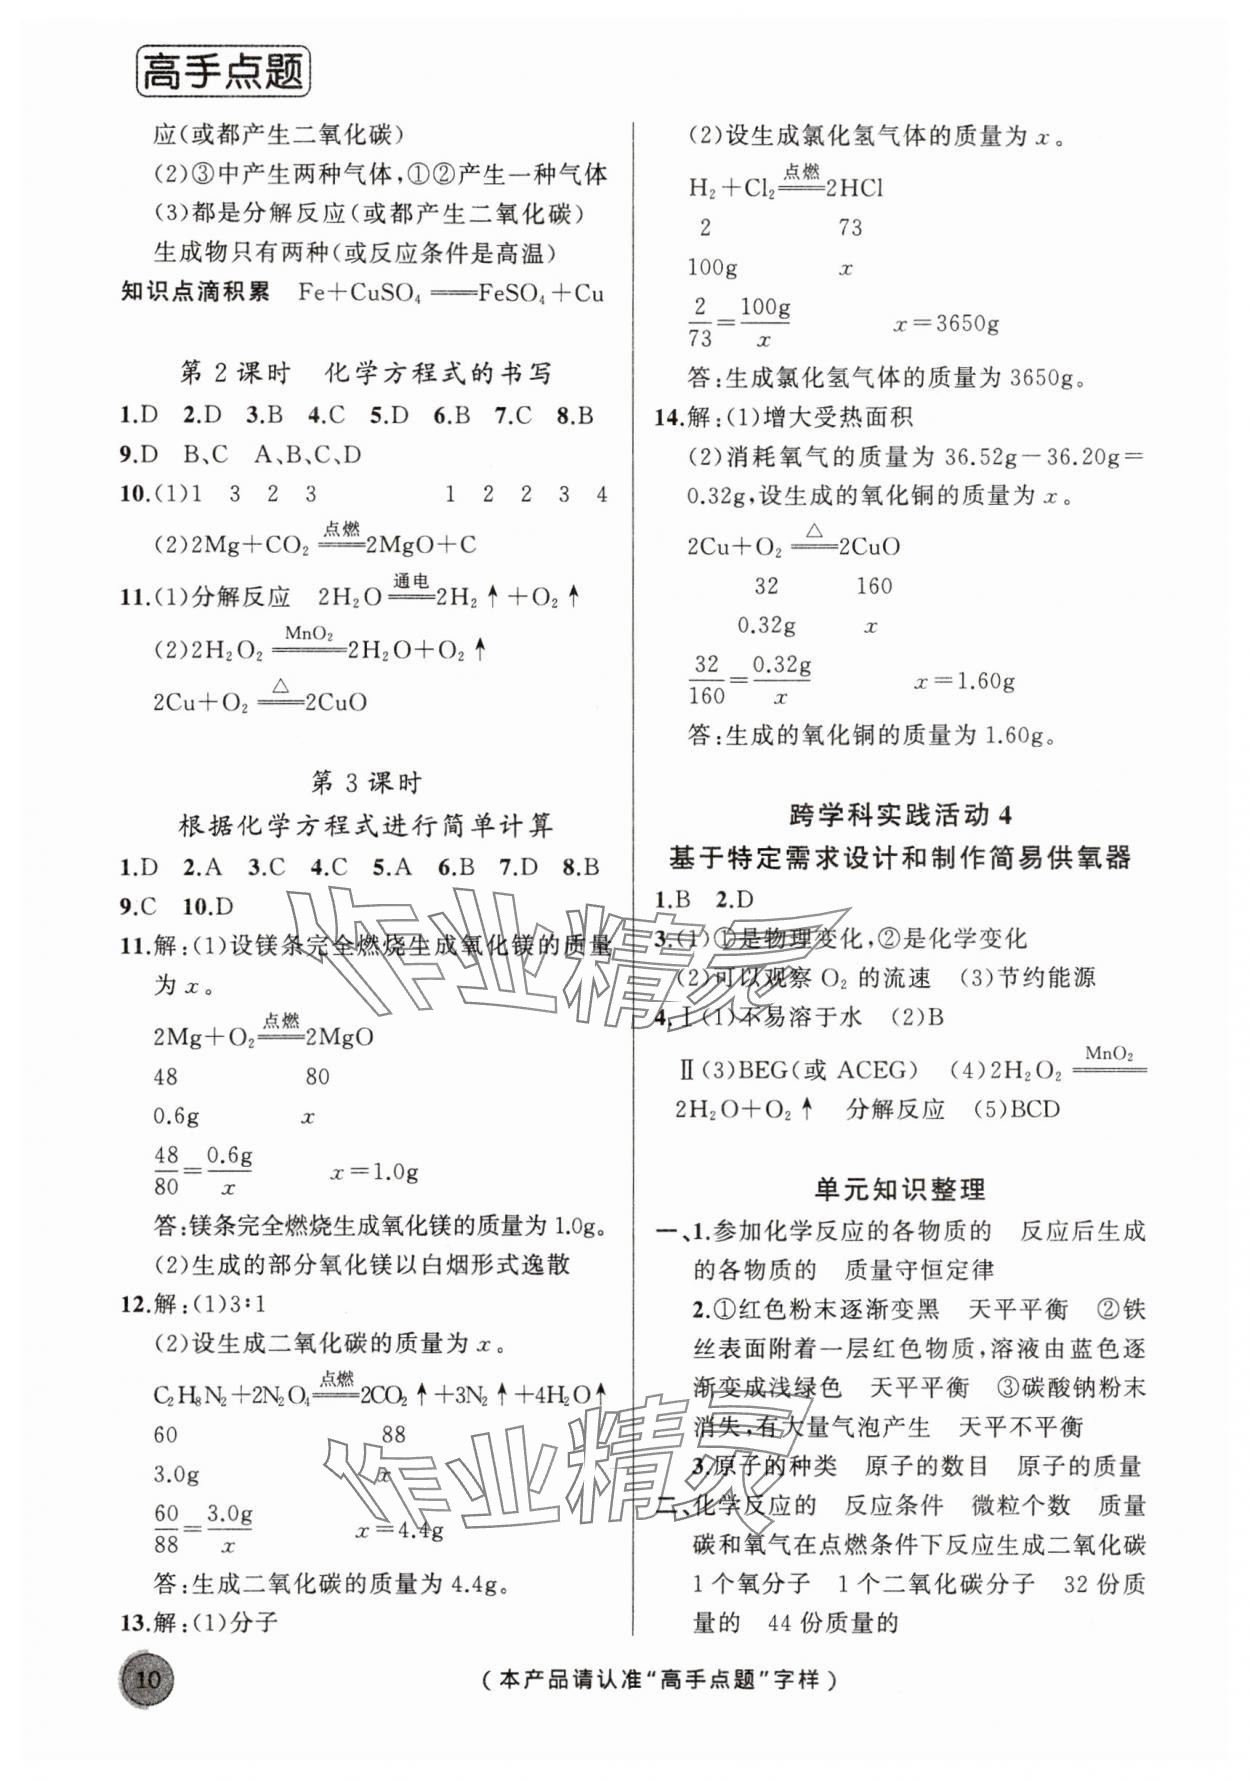 高手点题
应(或都产生二氧化碳)
(2)③中产生两种气体,①②产生一种气体
(3)都是分解反应(或都产生二氧化碳)
生成物只有两种(或反应条件是高温)
知识点滴积累 Fe+CuSO₄══FeSO₄+Cu
第 2 课时 化学方程式的书写
1.D 2.D 3.B 4.C 5.D 6.B 7.C 8.B
9.D B、C A、B、C、D
10.(1)1 3 2 3 1 2 2 3 4
点燃
(2)2Mg+CO₂══2MgO+C
通电
11.(1)分解反应 2H₂O══2H₂↑+O₂↑
MnO₂
(2)2H₂O₂══2H₂O+O₂↑
△
2Cu+O₂══2CuO
第 3 课时
根据化学方程式进行简单计算
1.D 2.A 3.C 4.C 5.A 6.B 7.D 8.B
9.C 10.D
11.解:(1)设镁条完全燃烧生成氧化镁的质量
为 x。
点燃
2Mg+O₂══2MgO
48 80
0.6g x
48/80=0.6g/x x=1.0g
答:镁条完全燃烧生成氧化镁的质量为1.0g。
(2)生成的部分氧化镁以白烟形式逸散
12.解:(1)3∶1
(2)设生成二氧化碳的质量为 x。
点燃
C₂H₈N₂+2N₂O₄══2CO₂↑+3N₂↑+4H₂O↑
60 88
3.0g x
60/88=3.0g/x x=4.4g
答:生成二氧化碳的质量为4.4g。
13.解:(1)分子
(2)设生成氯化氢气体的质量为 x。
点燃
H₂+Cl₂══2HCl
2 73
100g x
2/73=100g/x x=3650g
答:生成氯化氢气体的质量为3650g。
14.解:(1)增大受热面积
(2)消耗氧气的质量为36.52g-36.20g=
0.32g,设生成的氧化铜的质量为 x。
△
2Cu+O₂══2CuO
32 160
0.32g x
32/160=0.32g/x x=1.60g
答:生成的氧化铜的质量为1.60g。
跨学科实践活动 4
基于特定需求设计和制作简易供氧器
1.B 2.D
3.(1)①是物理变化,②是化学变化
(2)可以观察 O₂ 的流速 (3)节约能源
4.Ⅰ(1)不易溶于水 (2)B
MnO₂
Ⅱ(3)BEG(或 ACEG) (4)2H₂O₂══
2H₂O+O₂↑ 分解反应 (5)BCD
单元知识整理
一、1.参加化学反应的各物质的 反应后生成
的各物质的 质量守恒定律
2.①红色粉末逐渐变黑 天平平衡 ②铁
丝表面附着一层红色物质,溶液由蓝色逐
渐变成浅绿色 天平平衡 ③碳酸钠粉末
消失,有大量气泡产生 天平不平衡
3.原子的种类 原子的数目 原子的质量
二、化学反应的 反应条件 微粒个数 质量
碳和氧气在点燃条件下反应生成二氧化碳
1个氧分子 1个二氧化碳分子 32份质
量的 44份质量的
作业精灵
作业精灵
10
(本产品请认准“高手点题”字样)